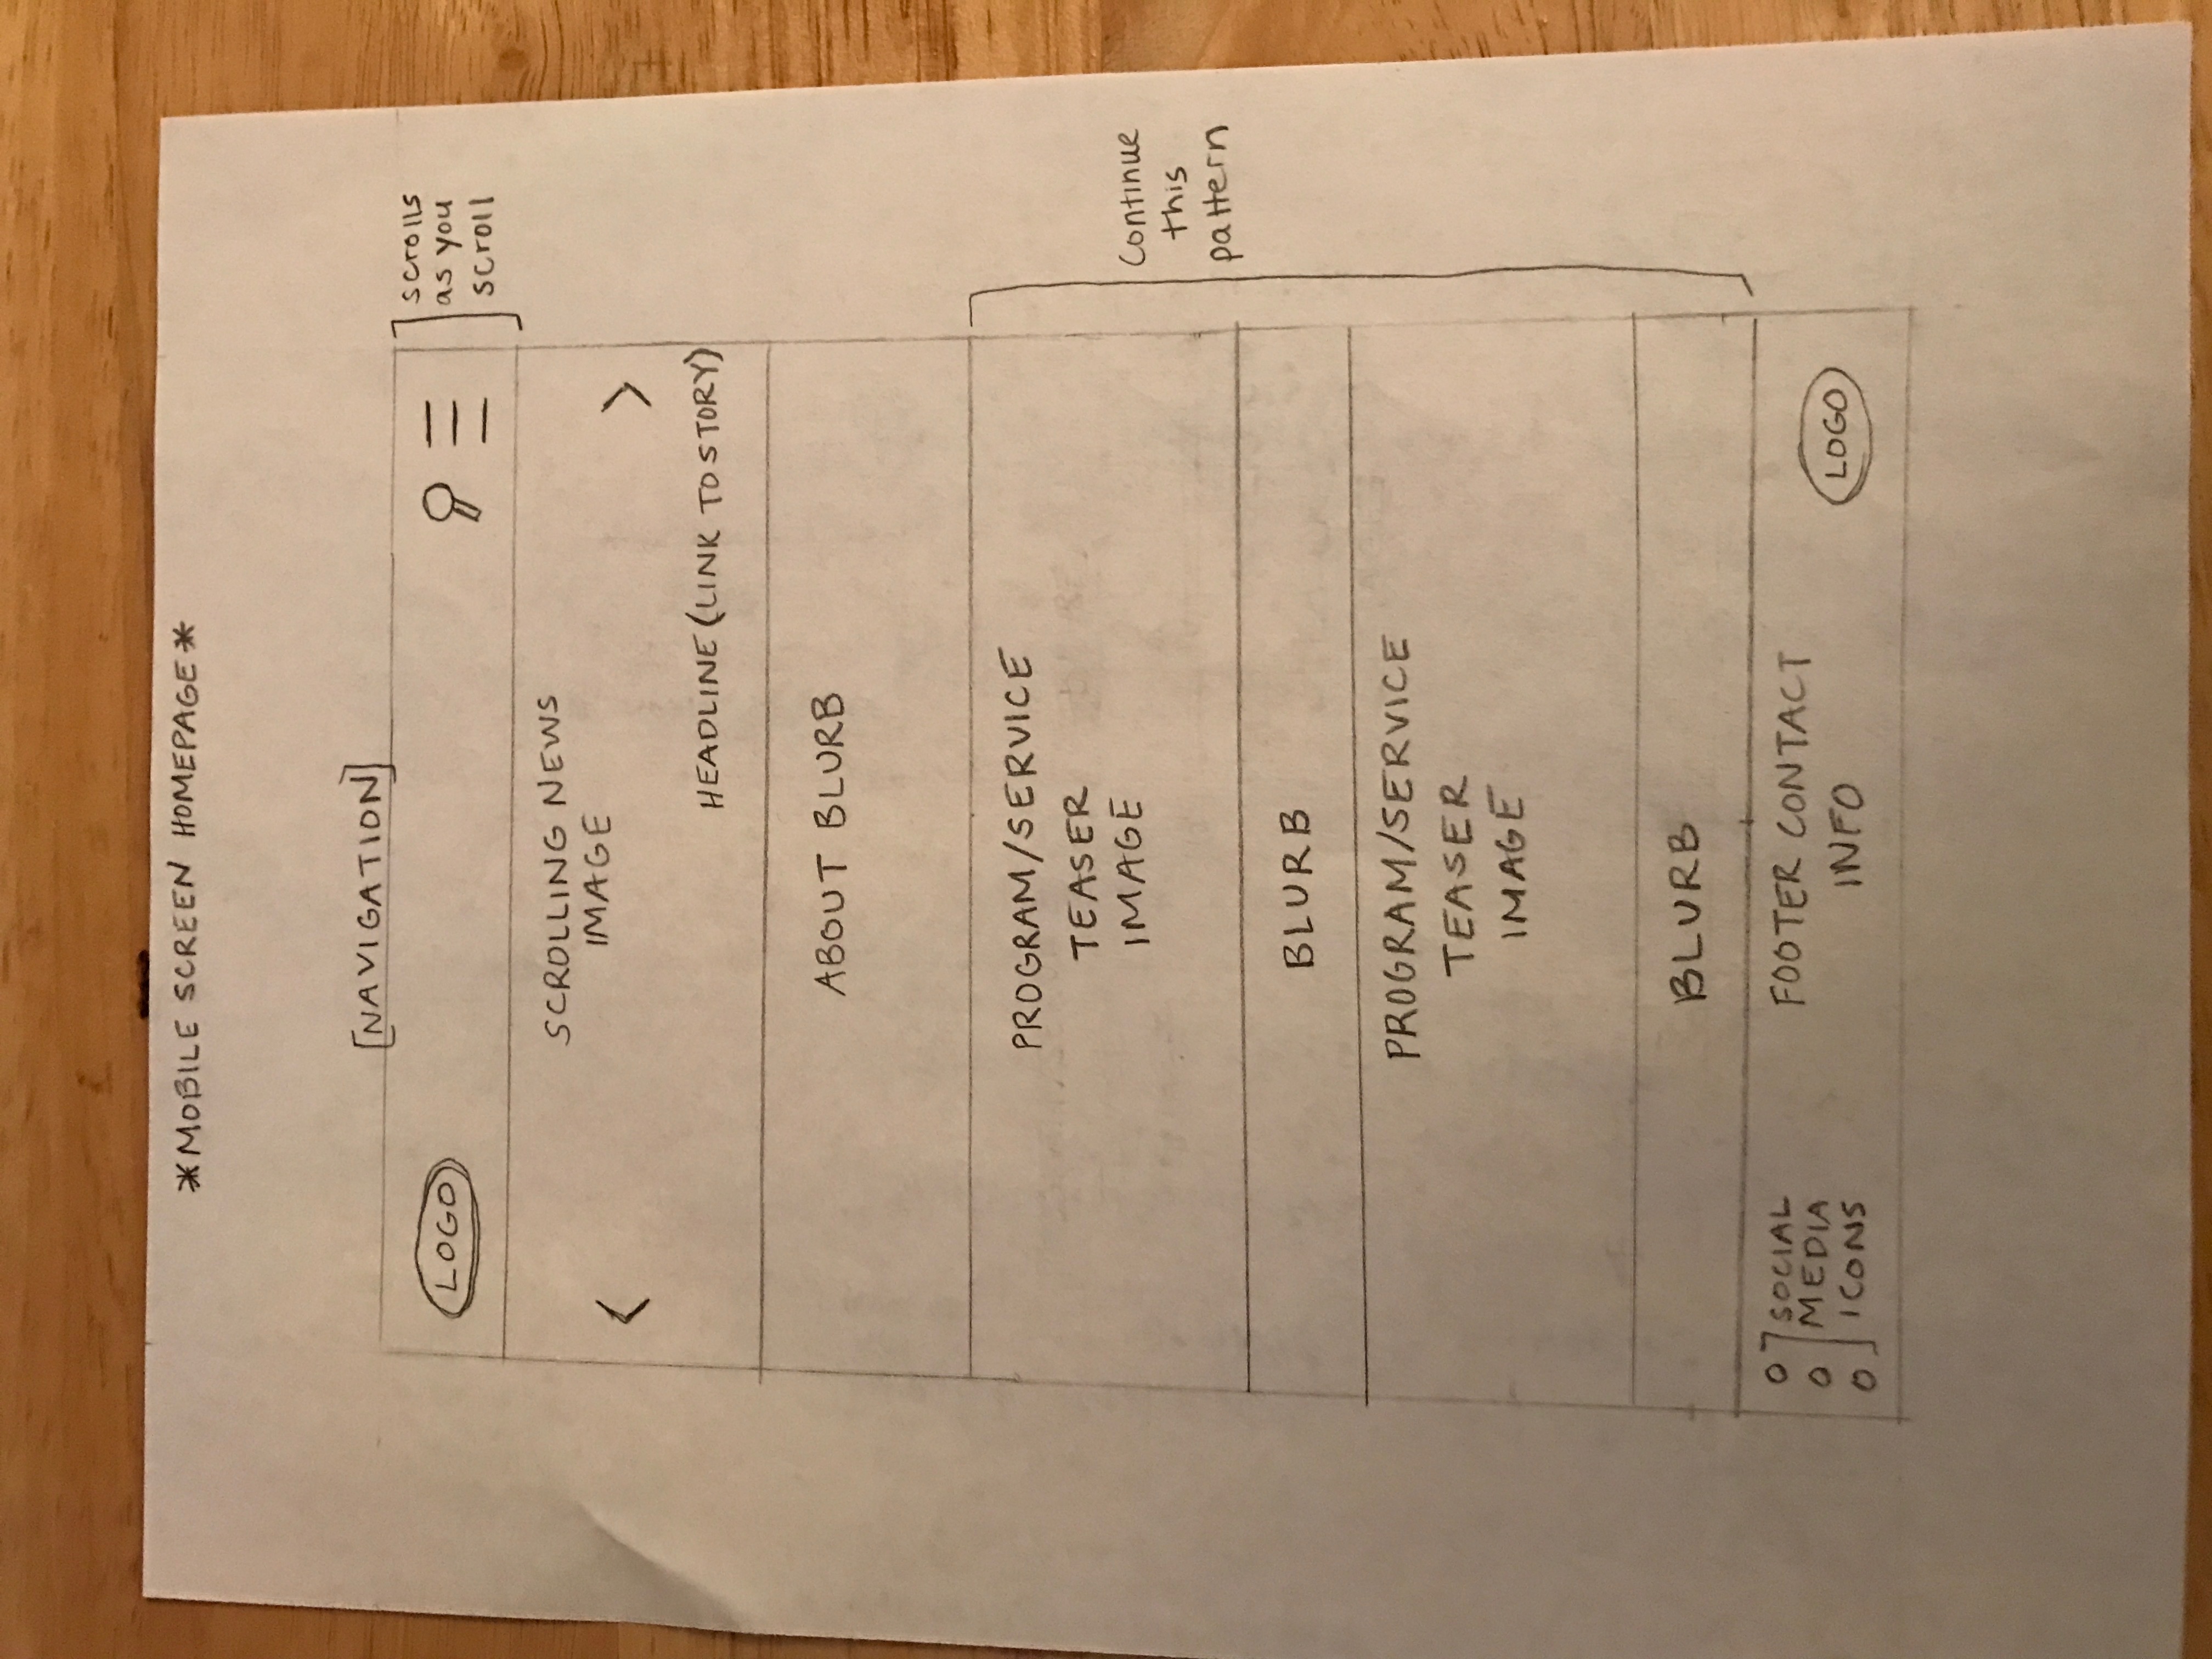 *MOBILE SCREEN HOMEPAGE*
[NAVIGATION]
LOGO
scrolls
as you
scroll
SCROLLING NEWS
IMAGE
HEADLINE (LINK TO STORY)
ABOUT BLURB
PROGRAM/SERVICE
TEASER
IMAGE
Continue
this
pattern
BLURB
PROGRAM/SERVICE
TEASER
IMAGE
BLURB
SOCIAL
MEDIA
ICONS
FOOTER CONTACT
INFO
LOGO